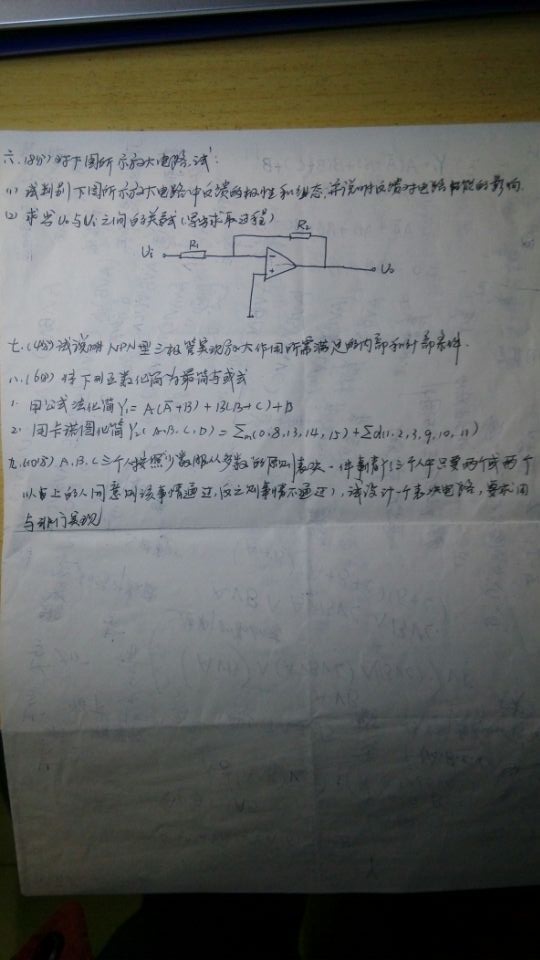 六.(8分)对下图所示放大电路,试:
(1) 试判别下图所示放大电路中反馈的极性和组态,并说明反馈对电路性能的影响.
(2) 求出Uo与Ui之间的关系式(写出求取过程)
Ui R1 R2 - + Uo
七.(4分)试说明NPN型三极管实现放大作用所需满足的内部和外部条件.
八.(6分)将下列函数化简为最简与或式
1. 用公式法化简Y1= A(Ā+B)+B(B+C)+B
2. 用卡诺图化简Y2(A.B.C.D)=∑m(0.8.13.14.15)+∑d(1.2.3.9.10.11)
九.(10分) A、B、C三个人按照少数服从多数的原则表决一件事情(三个人中只要两个或两个
以上的人同意则该事情通过,反之则事情不通过),试设计一个表决电路,要求用
与非门实现